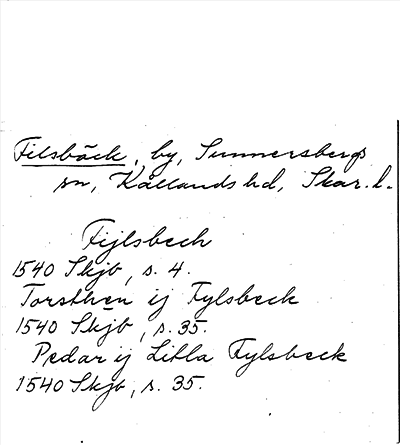 Filsbäck, by, Sunnersbergs
sn, Kållands hd, Skar. l.
Fijlsbech
1540 Skjb, s. 4.
Torsthen ij Fylsbeck
1540 Skjb, s. 35.
Pedar ij Litla Fylsbeck
1540 Skjb, s. 35.